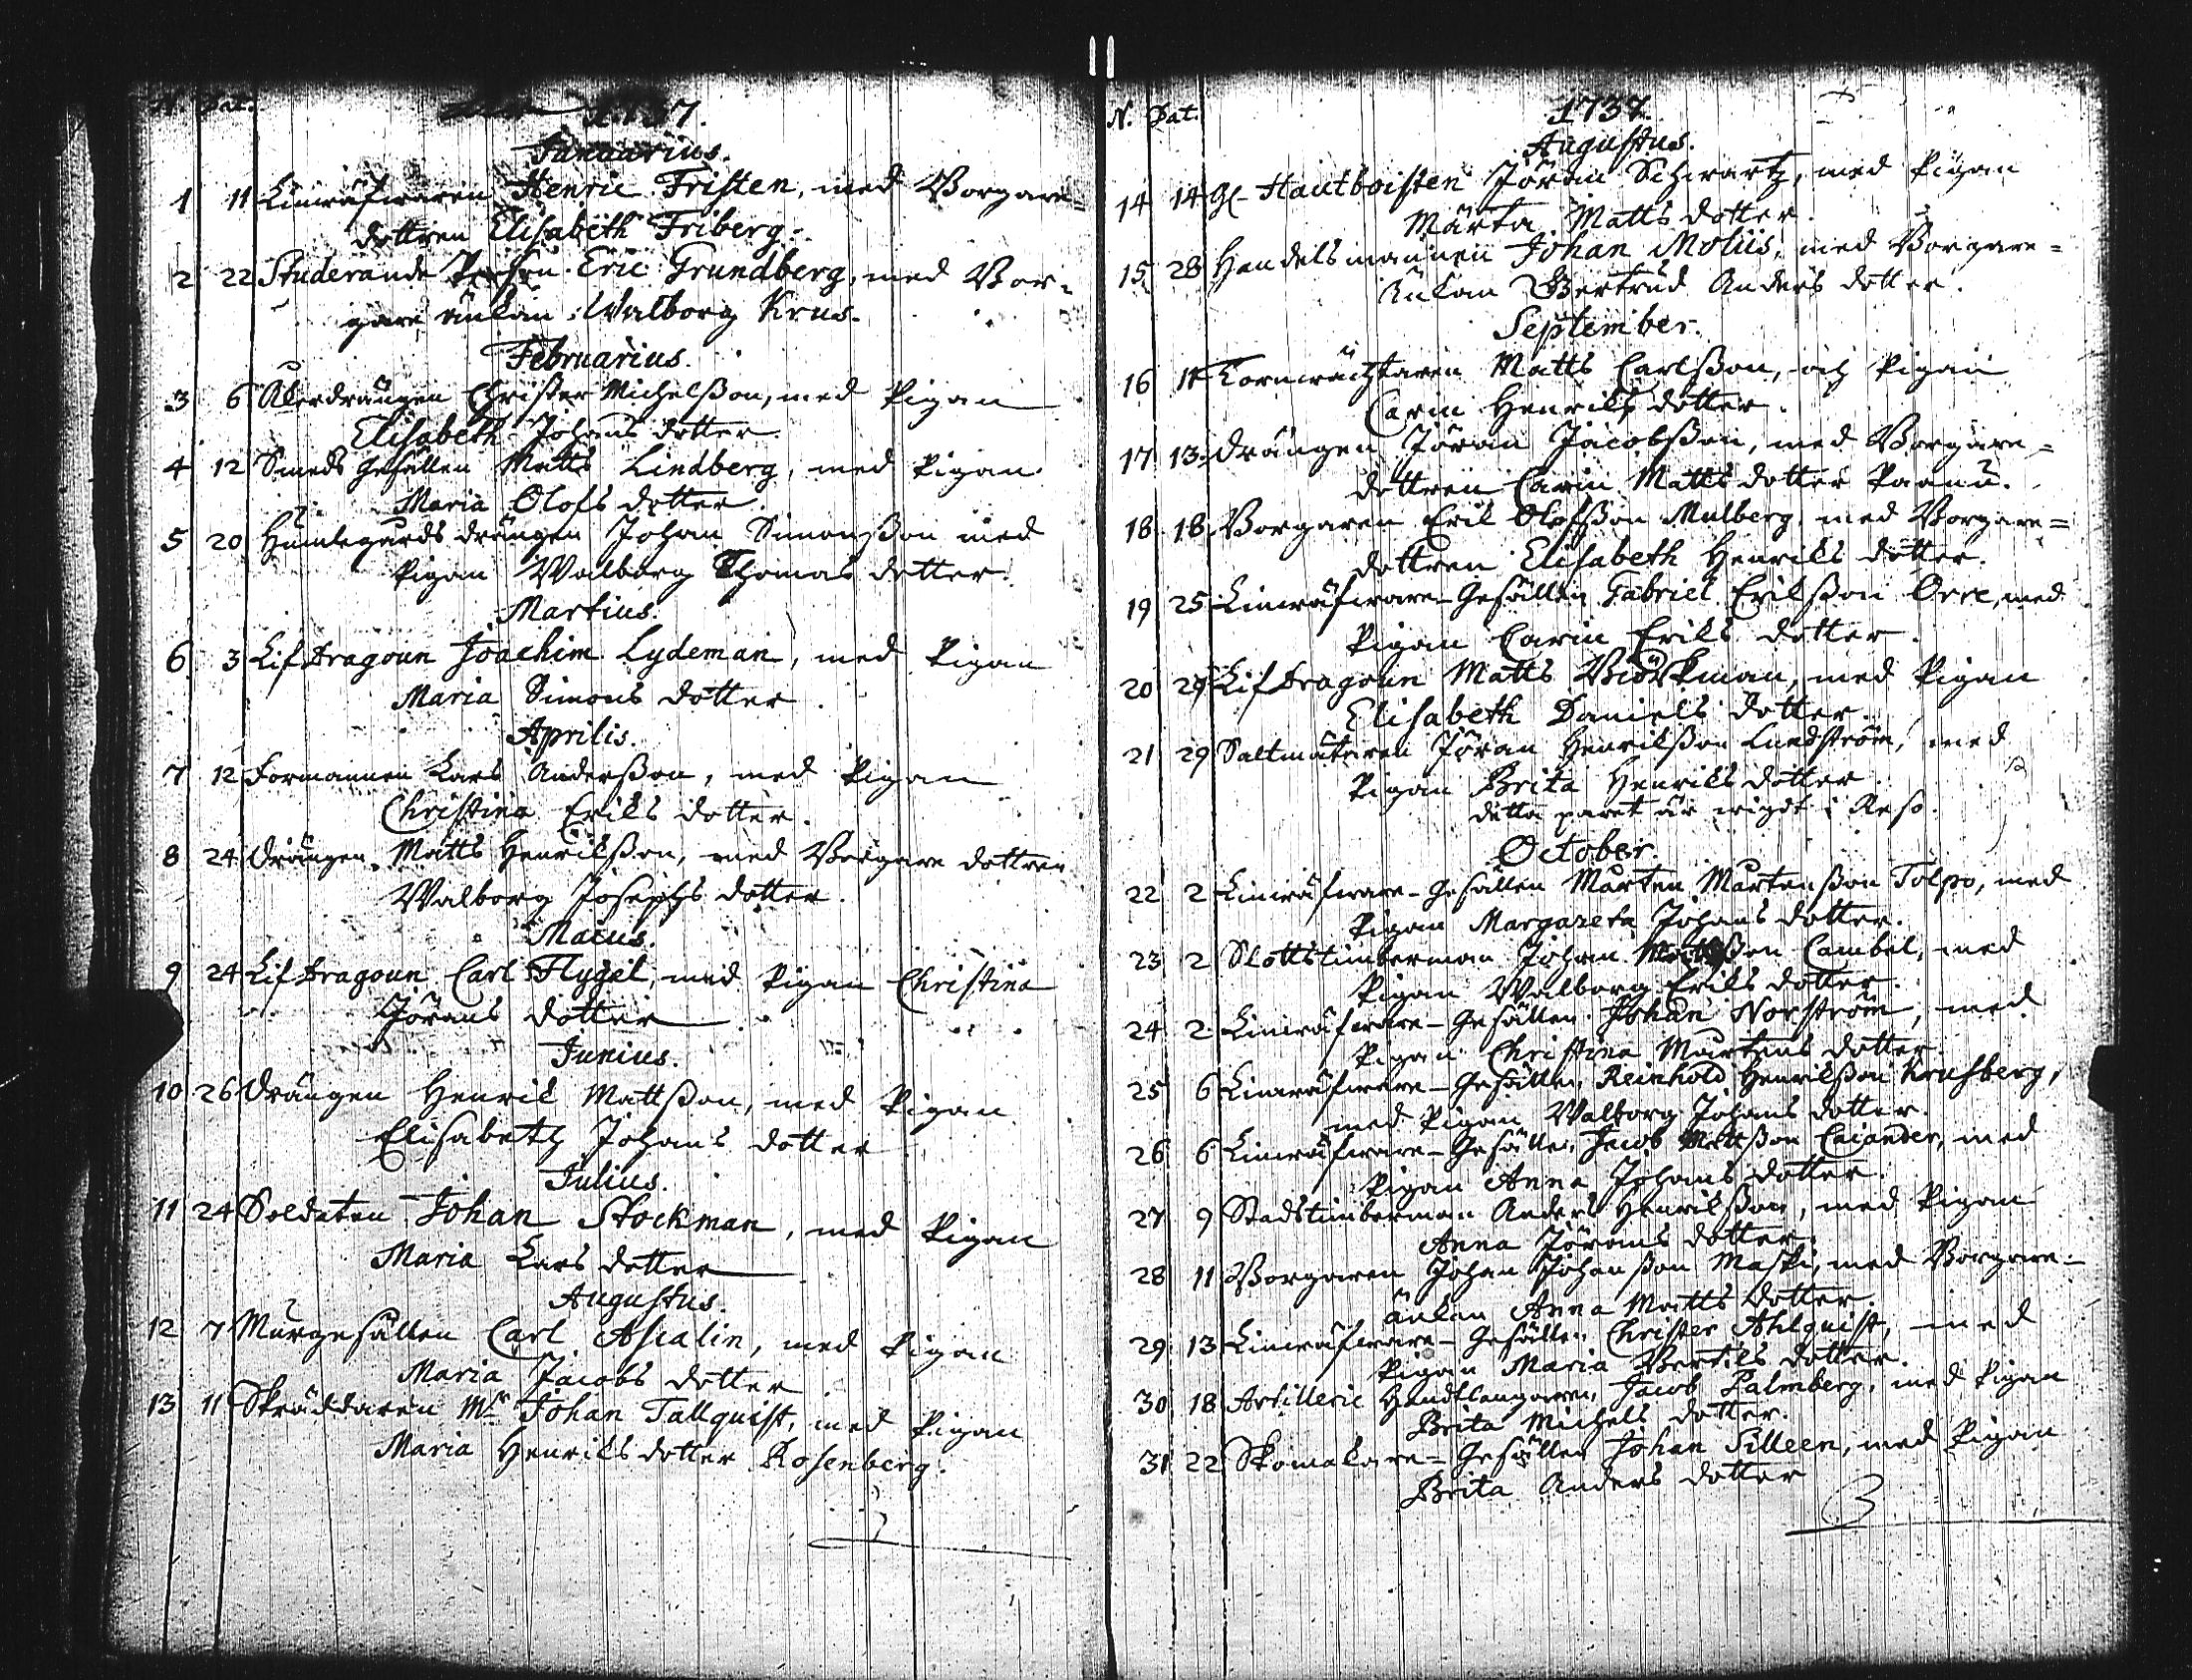 N. Dat.
1737.
Januarius.
1 11 Linwäfwaren Henric Fristen, med Borgare=
dottren Elisabeth Friberg.
2 22 Studerande Eric Grundberg, med Bor=
gare änkan Walborg Krus.
Februarius.
3 6 Åkerdrängen Christer Michelsson, med Pigan
Elisabeth Johans dotter.
4 12 Smeds Gesällen Matts Lindberg, med Pigan
Maria Olofs dotter.
5 20 Humlegårds drängen Johan Simonsson med
Pigan Walborg Thomas dotter.
Martius.
6 3 Lif Dragoun Joachim Lydeman, med Pigan
Maria Simons dotter.
Aprilis.
7 12 Formannen Lars Andersson, med Pigan
Christina Eriks dotter.
8 24 Drängen Matts Henriksson, med Borgare dottren
Walborg Josephs dotter.
Maius.
9 24 Lif Dragoun Carl Flygel, med Pigan Christina
Jörans dotter.
Junius.
10 26 Drängen Henrik Mattsson, med Pigan
Elisabeth Johans dotter
Julius.
11 24 Soldaten Johan Stockman, med Pigan
Maria Lars dotter
Augustus.
12 7 Murgesällen Carl Ascalin, med Pigan
Maria Jacobs dotter
13 11 Skräddaren Mr Johan Tallquist, med Pigan
Maria Henriks dotter Rosenberg.
N. Dat.
1737.
Augustus.
14 14 Hautboisten Jöran Schwartz, med Pigan
Märta Matts dotter.
15 28 Handelsmannen Johan Molüs, med Borgare=
änkan Gertrud Anders dotter.
September.
16 11 Tornwächtaren Matts Carlsson, och Pigan
Carin Henriks dotter.
17 13 Drängen Jöran Jacobsson, med Borgare=
dottren Carin Matts dotter Paanu.
18 18 Borgaren Erik Olofsson Mulberg, med Borgare=
dottren Elisabeth Henriks dotter.
19 25 Linwäfware-Gesällen Gabriel Eriksson Orre, med
Pigan Carin Eriks dotter.
20 29 Lif Dragoun Matts Biörkman, med Pigan
Elisabeth Daniels dotter.
21 29 Saltmätaren Jöran Henriksson Lundström, med
Pigan Brita Henriks dotter.
detta paret är wigdt i Reso.
October.
22 2 Linwäfware-Gesällen Mårten Mårtensson Tolpo, med
Pigan Margareta Johans dotter.
23 2 Slottstimberman Johan Mattsson Cambel, med
Pigan Walborg Eriks dotter.
24 2 Linwäfware-Gesällen Johan Norström, med
Pigan Christina Mårtens dotter.
25 6 Linwäfware-Gesällen Reinhold Henriksson Krusberg,
med Pigan Walborg Johans dotter.
26 6 Linwäfware-Gesällen Jacob Mattsson Caiander, med
Pigan Anna Johans dotter.
27 9 Stadstimberman Anders Henriksson, med Pigan
Anna Jörans dotter.
28 11 Borgaren Johan Johansson Maski, med Borgare-
änkan Anna Matts dotter
29 13 Linwäfware-Gesällen Christer Ahlquist, med
Pigan Maria Bertils dotter.
30 18 Artillerie Handtlangaren Jacob Palmberg, med Pigan
Brita Michels dotter.
31 22 Skomakare-Gesällen Johan Silleen, med Pigan
Brita Anders dotter